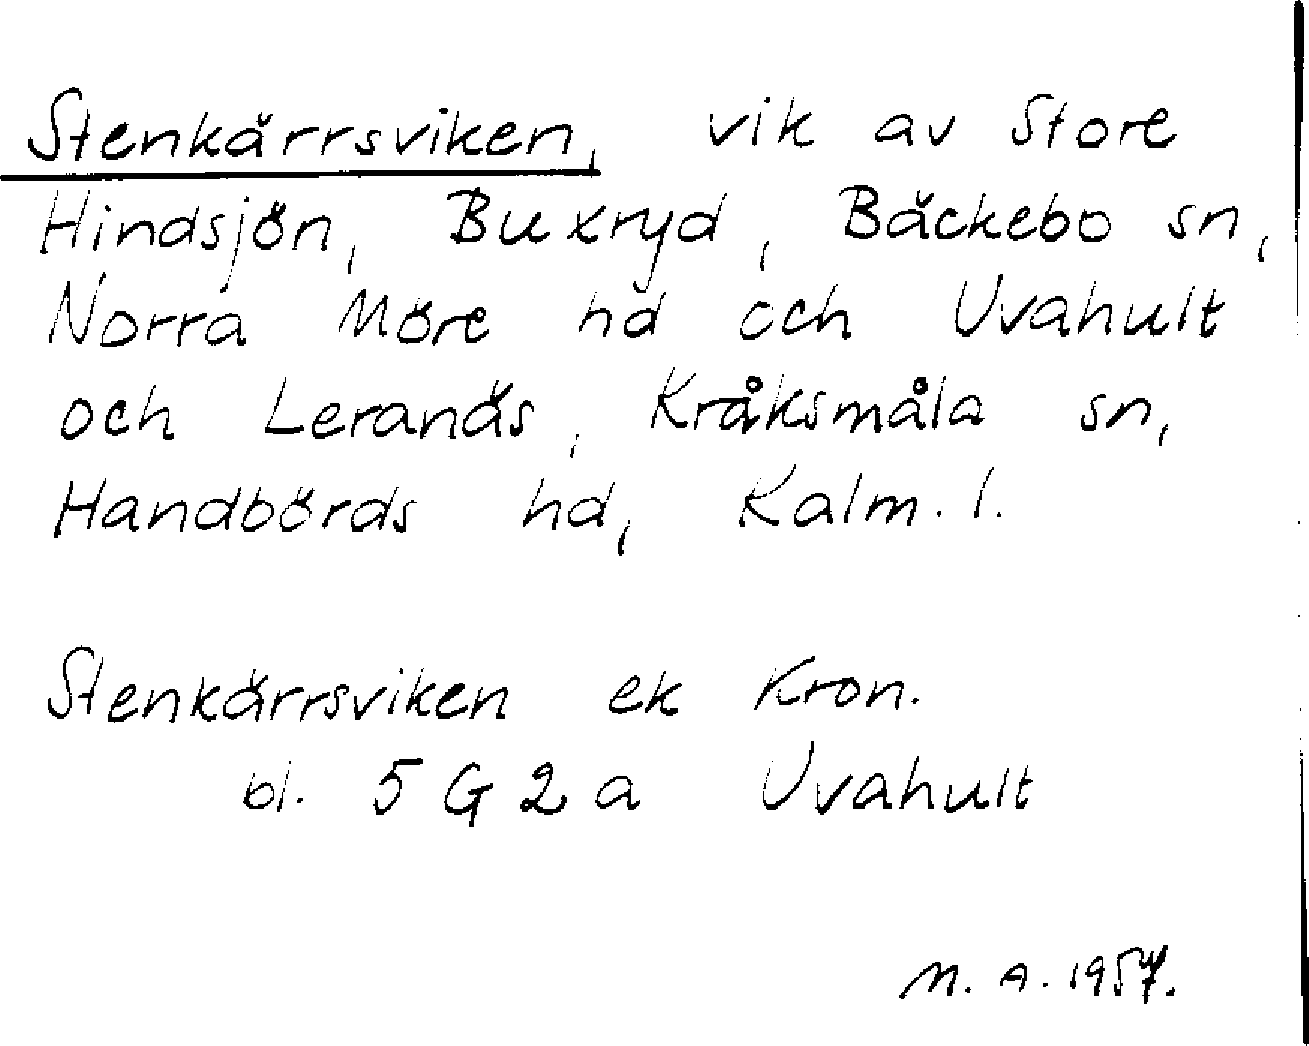 Stenkärrsviken, vik av Store
Hindsjön, Buxryd, Bäckebo sn,
Norra Möre hd och Uvahult
och Leranäs, Kråksmåla sn,
Handbörds hd, Kalm. l.
Stenkärrsviken ek Kron.
bl. 5 G 2 a Uvahult
M. A. 1957.